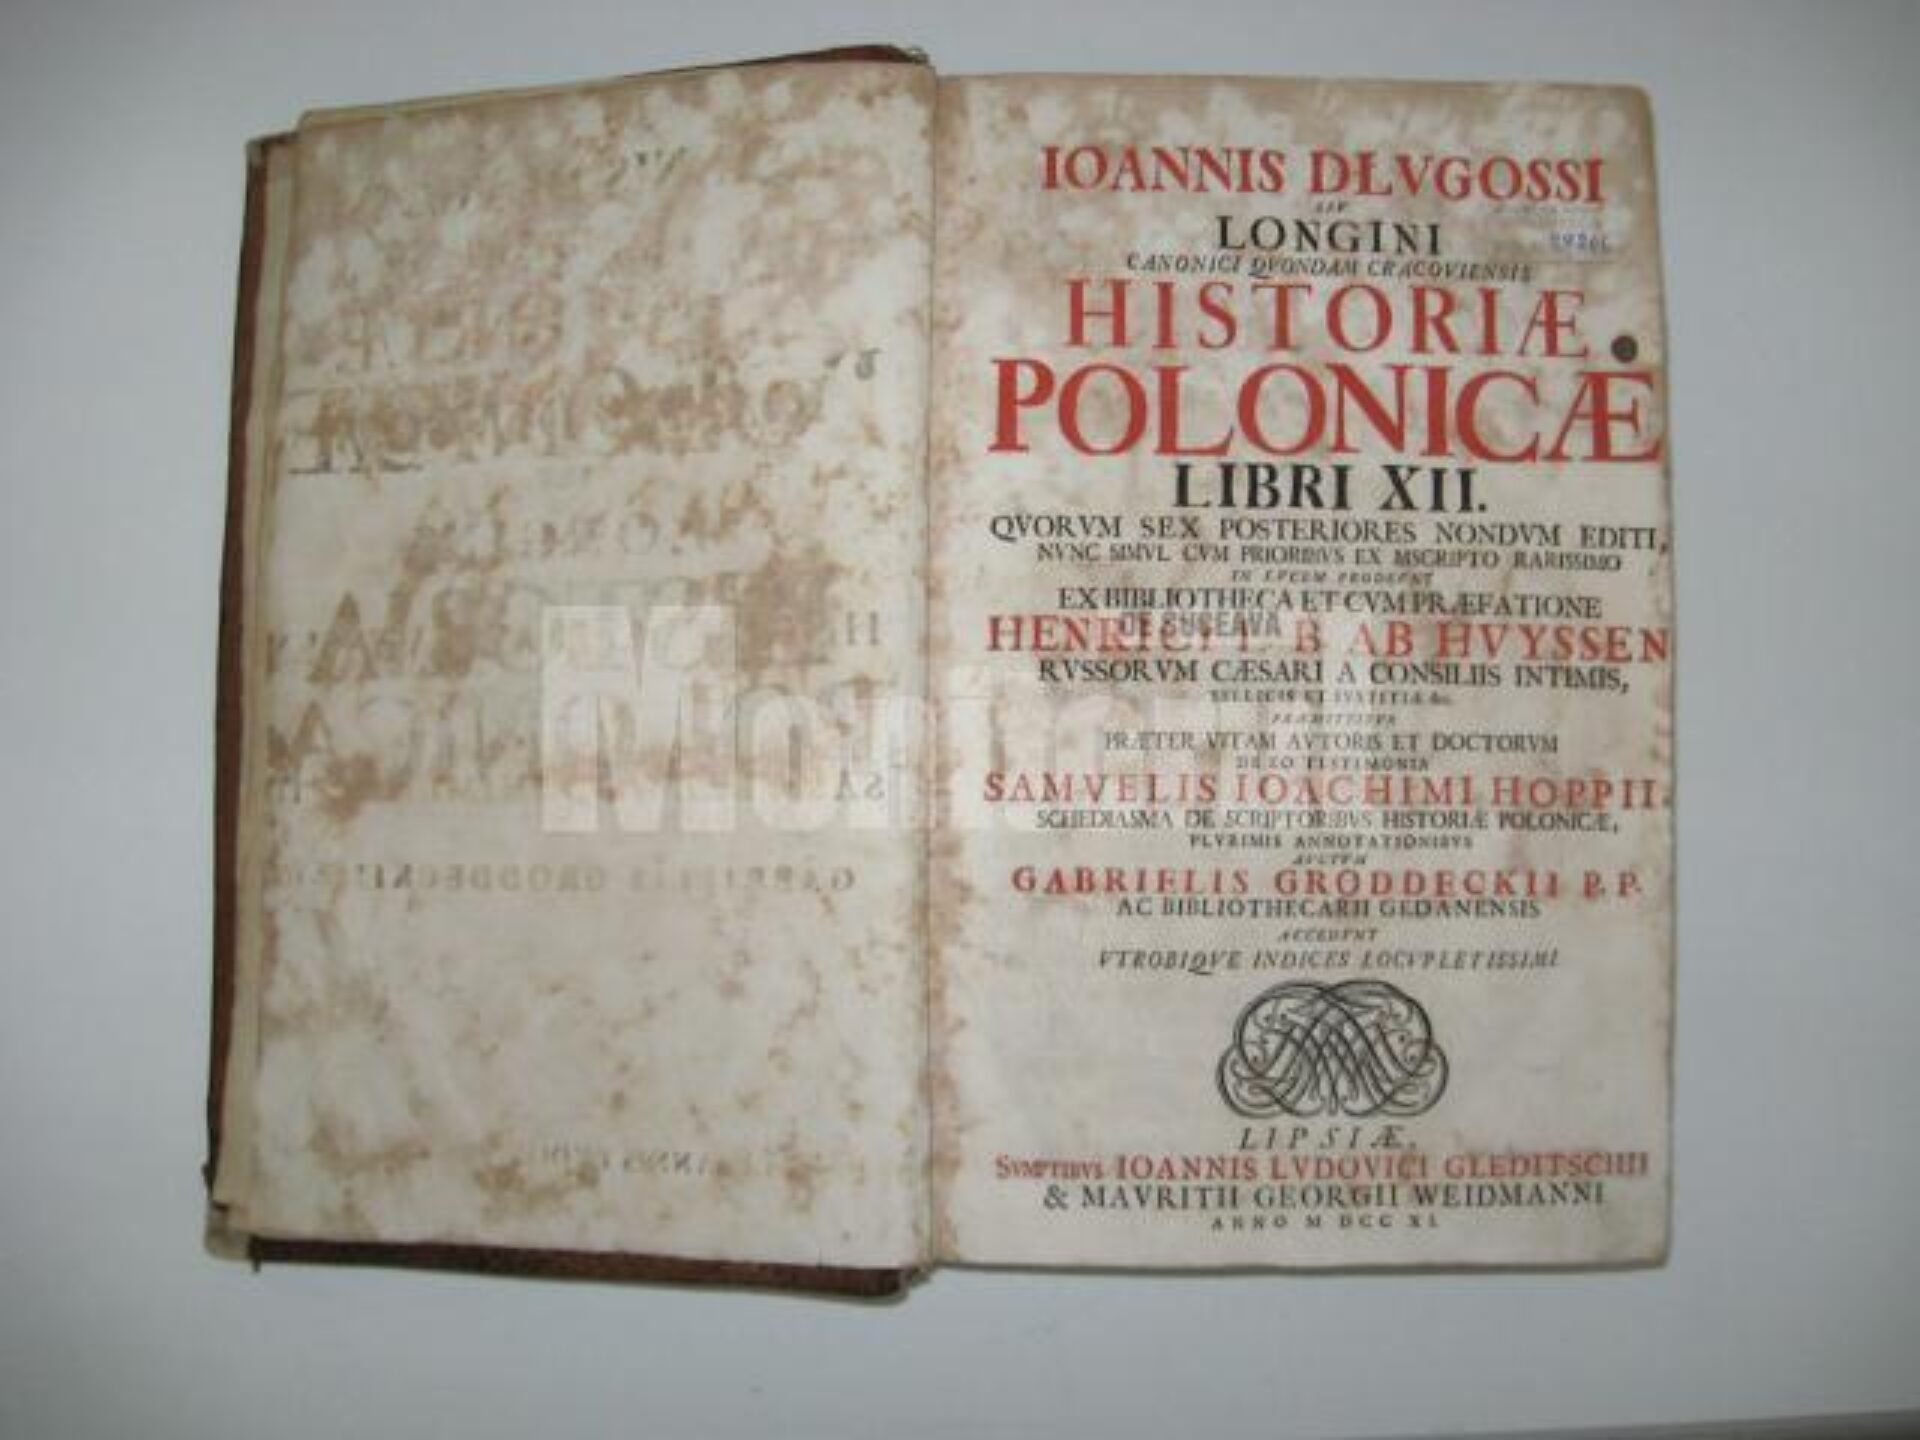 IOANNIS DŁVGOSSI
SEV
LONGINI
CANONICI QVONDAM CRACOVIENSIS
HISTORIÆ
POLONICÆ
LIBRI XII.
QVORVM SEX POSTERIORES NONDVM EDITI,
NVNC SIMVL CVM PRIORIBVS EX MSCRIPTO RARISSIMO
IN LVCEM PRODEVNT
EX BIBLIOTHECA ET CVM PRÆFATIONE
DE SUCEAVA
HENRICI L. B. AB HVYSSEN
RVSSORVM CÆSARI A CONSILIIS INTIMIS,
BELLICIS ET IVSTITIÆ &c.
PRÆMITTITVR
PRÆTER VITAM AVTORIS ET DOCTORVM
DE EO TESTIMONIA
SAMVELIS IOACHIMI HOPPII
SCHEDIASMA DE SCRIPTORIBVS HISTORIÆ POLONICÆ,
PLVRIMIS ANNOTATIONIBVS
AVCTVM
GABRIELIS GRODDECKII P. P.
AC BIBLIOTHECARII GEDANENSIS
ACCEDVNT
VTROBIQVE INDICES LOCVPLETISSIMI
LIPSIÆ,
SVMPTIBVS IOANNIS LVDOVICI GLEDITSCHII
& MAVRITII GEORGII WEIDMANNI
ANNO M DCC XI.